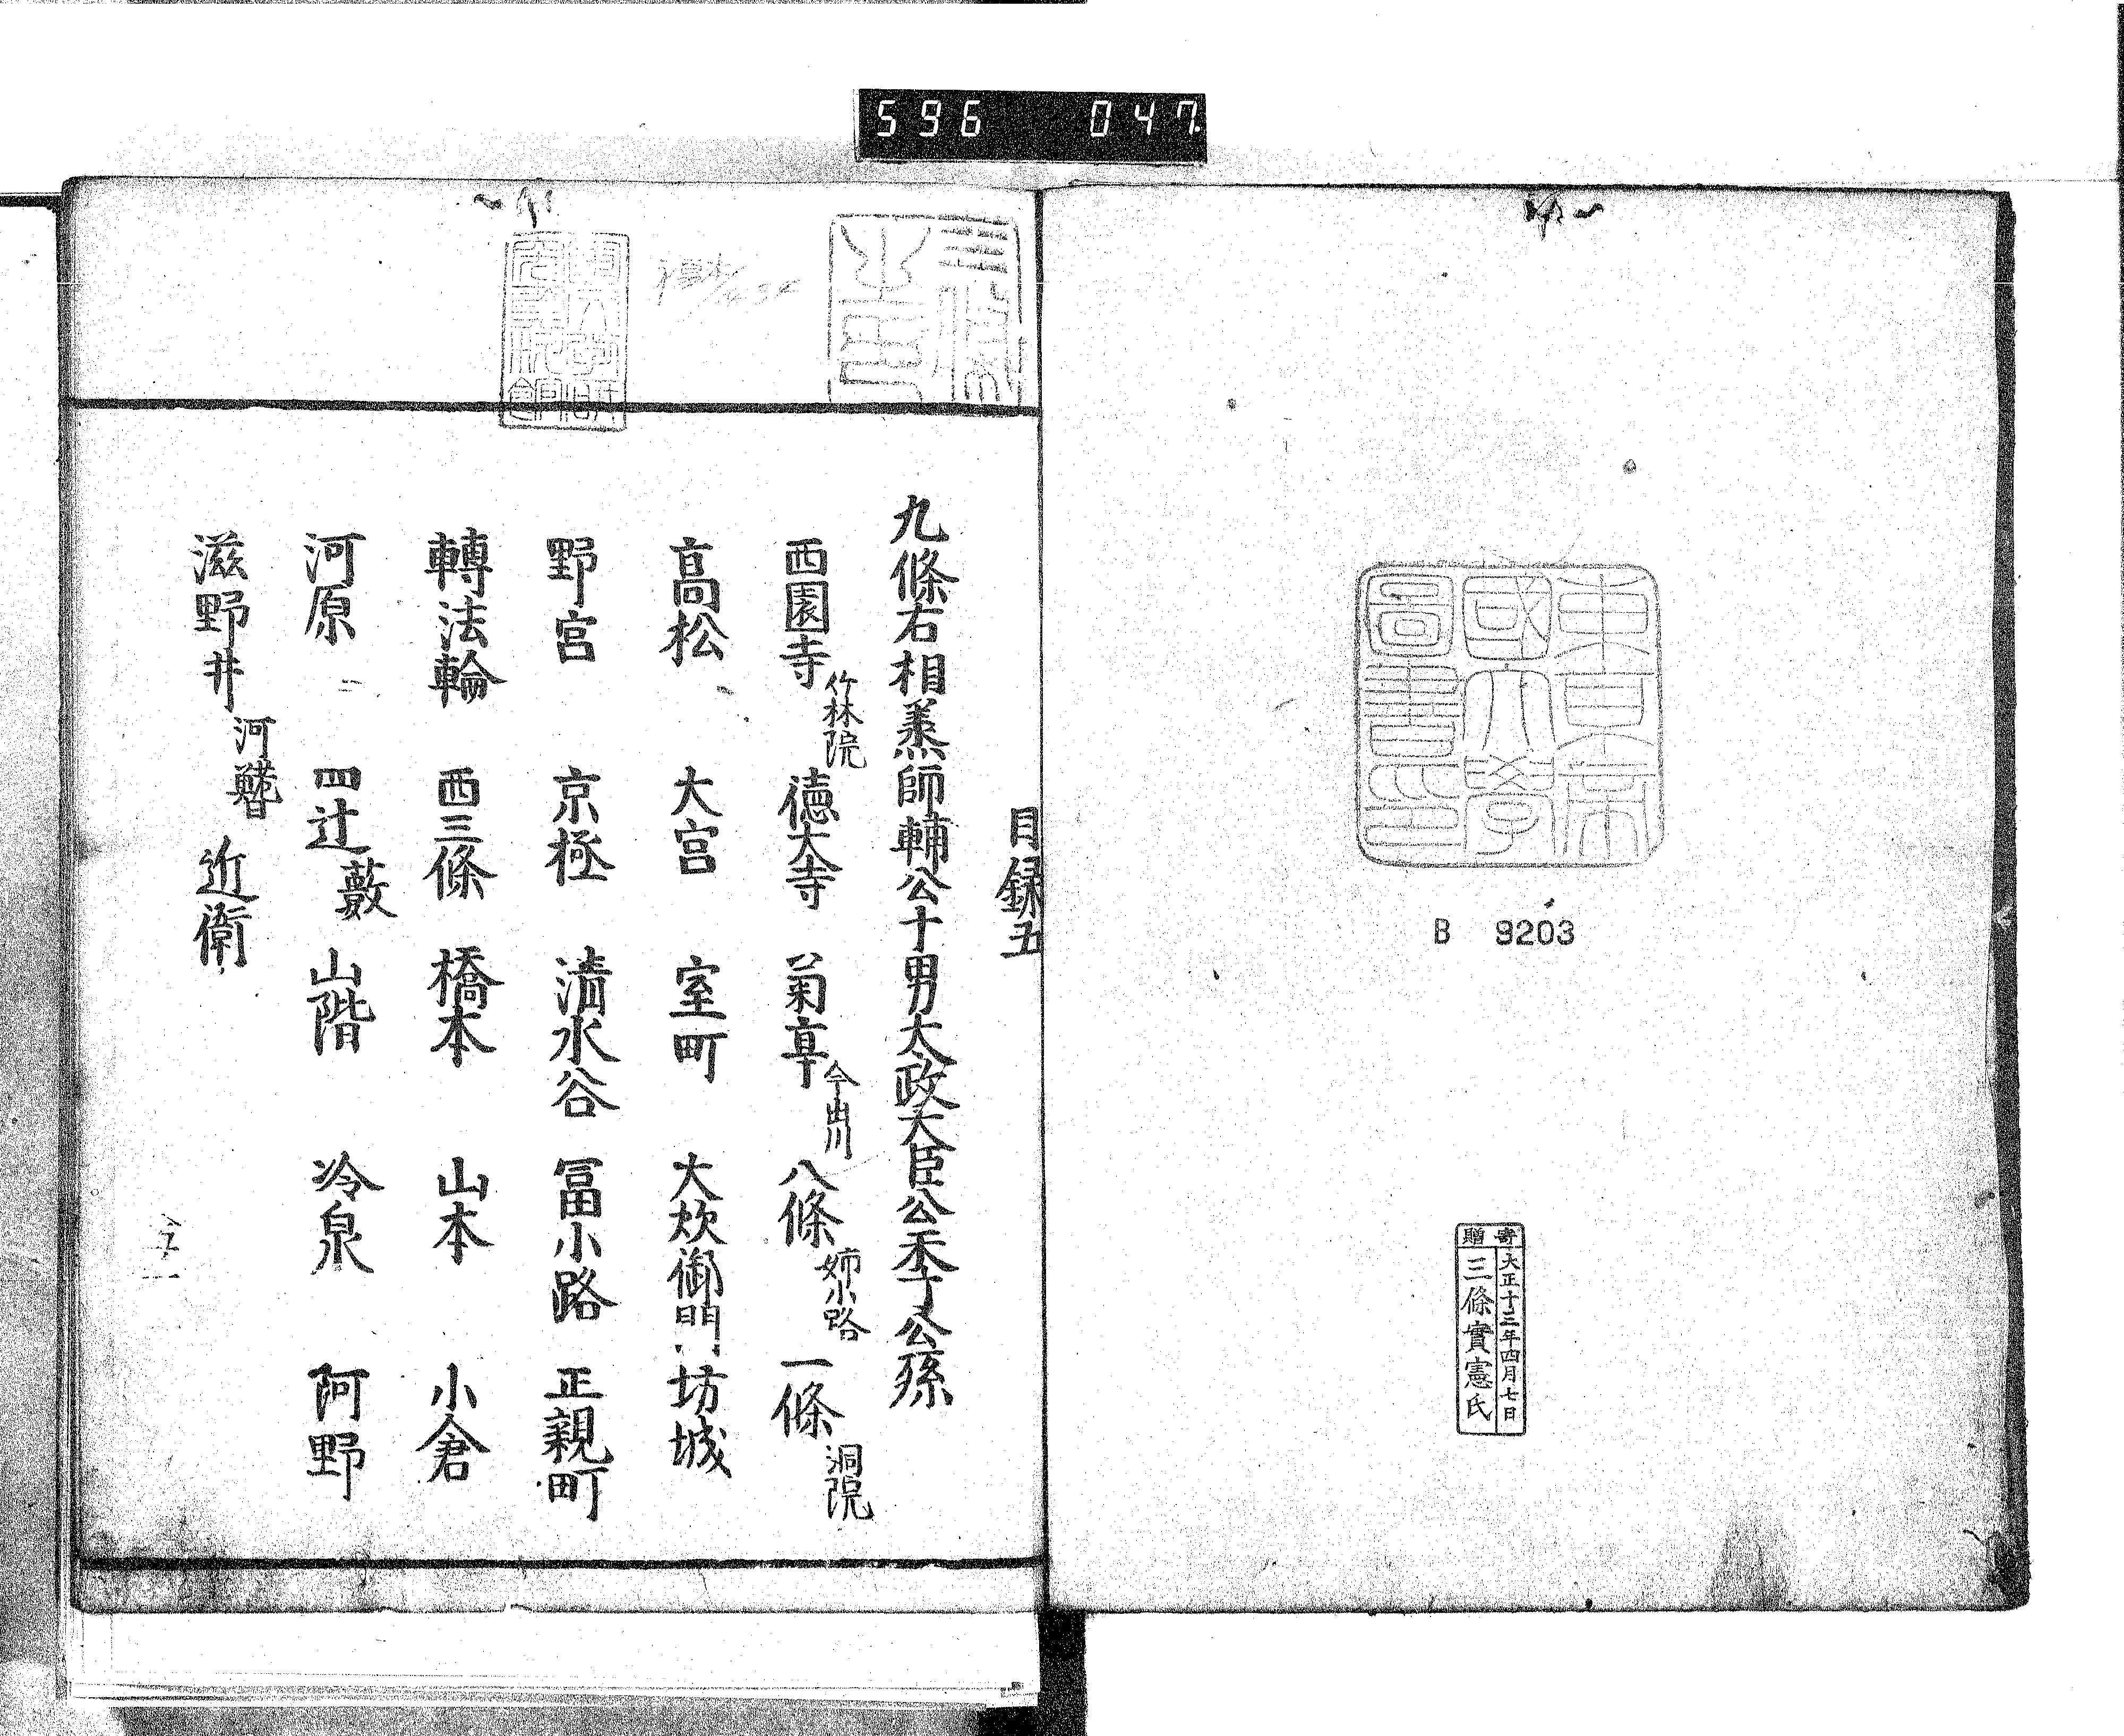 596 047
東京帝
國大學
圖書印
B 9203
寄贈
大正十三年四月七日
三條實憲氏
目録五
九條右相烝師輔公十男大政大臣公季公孫
西園寺 竹林院 徳大寺 菊亭 今出川 八條 姉小路 一條 洞院
高松 大宮 室町 大炊御門 坊城
野宮 京極 清水谷 冨小路 正親町
轉法輪 西三條 橋本 山本 小倉
河原 四辻 藪 山階 冷泉 阿野
滋野井 河鰭 近衛